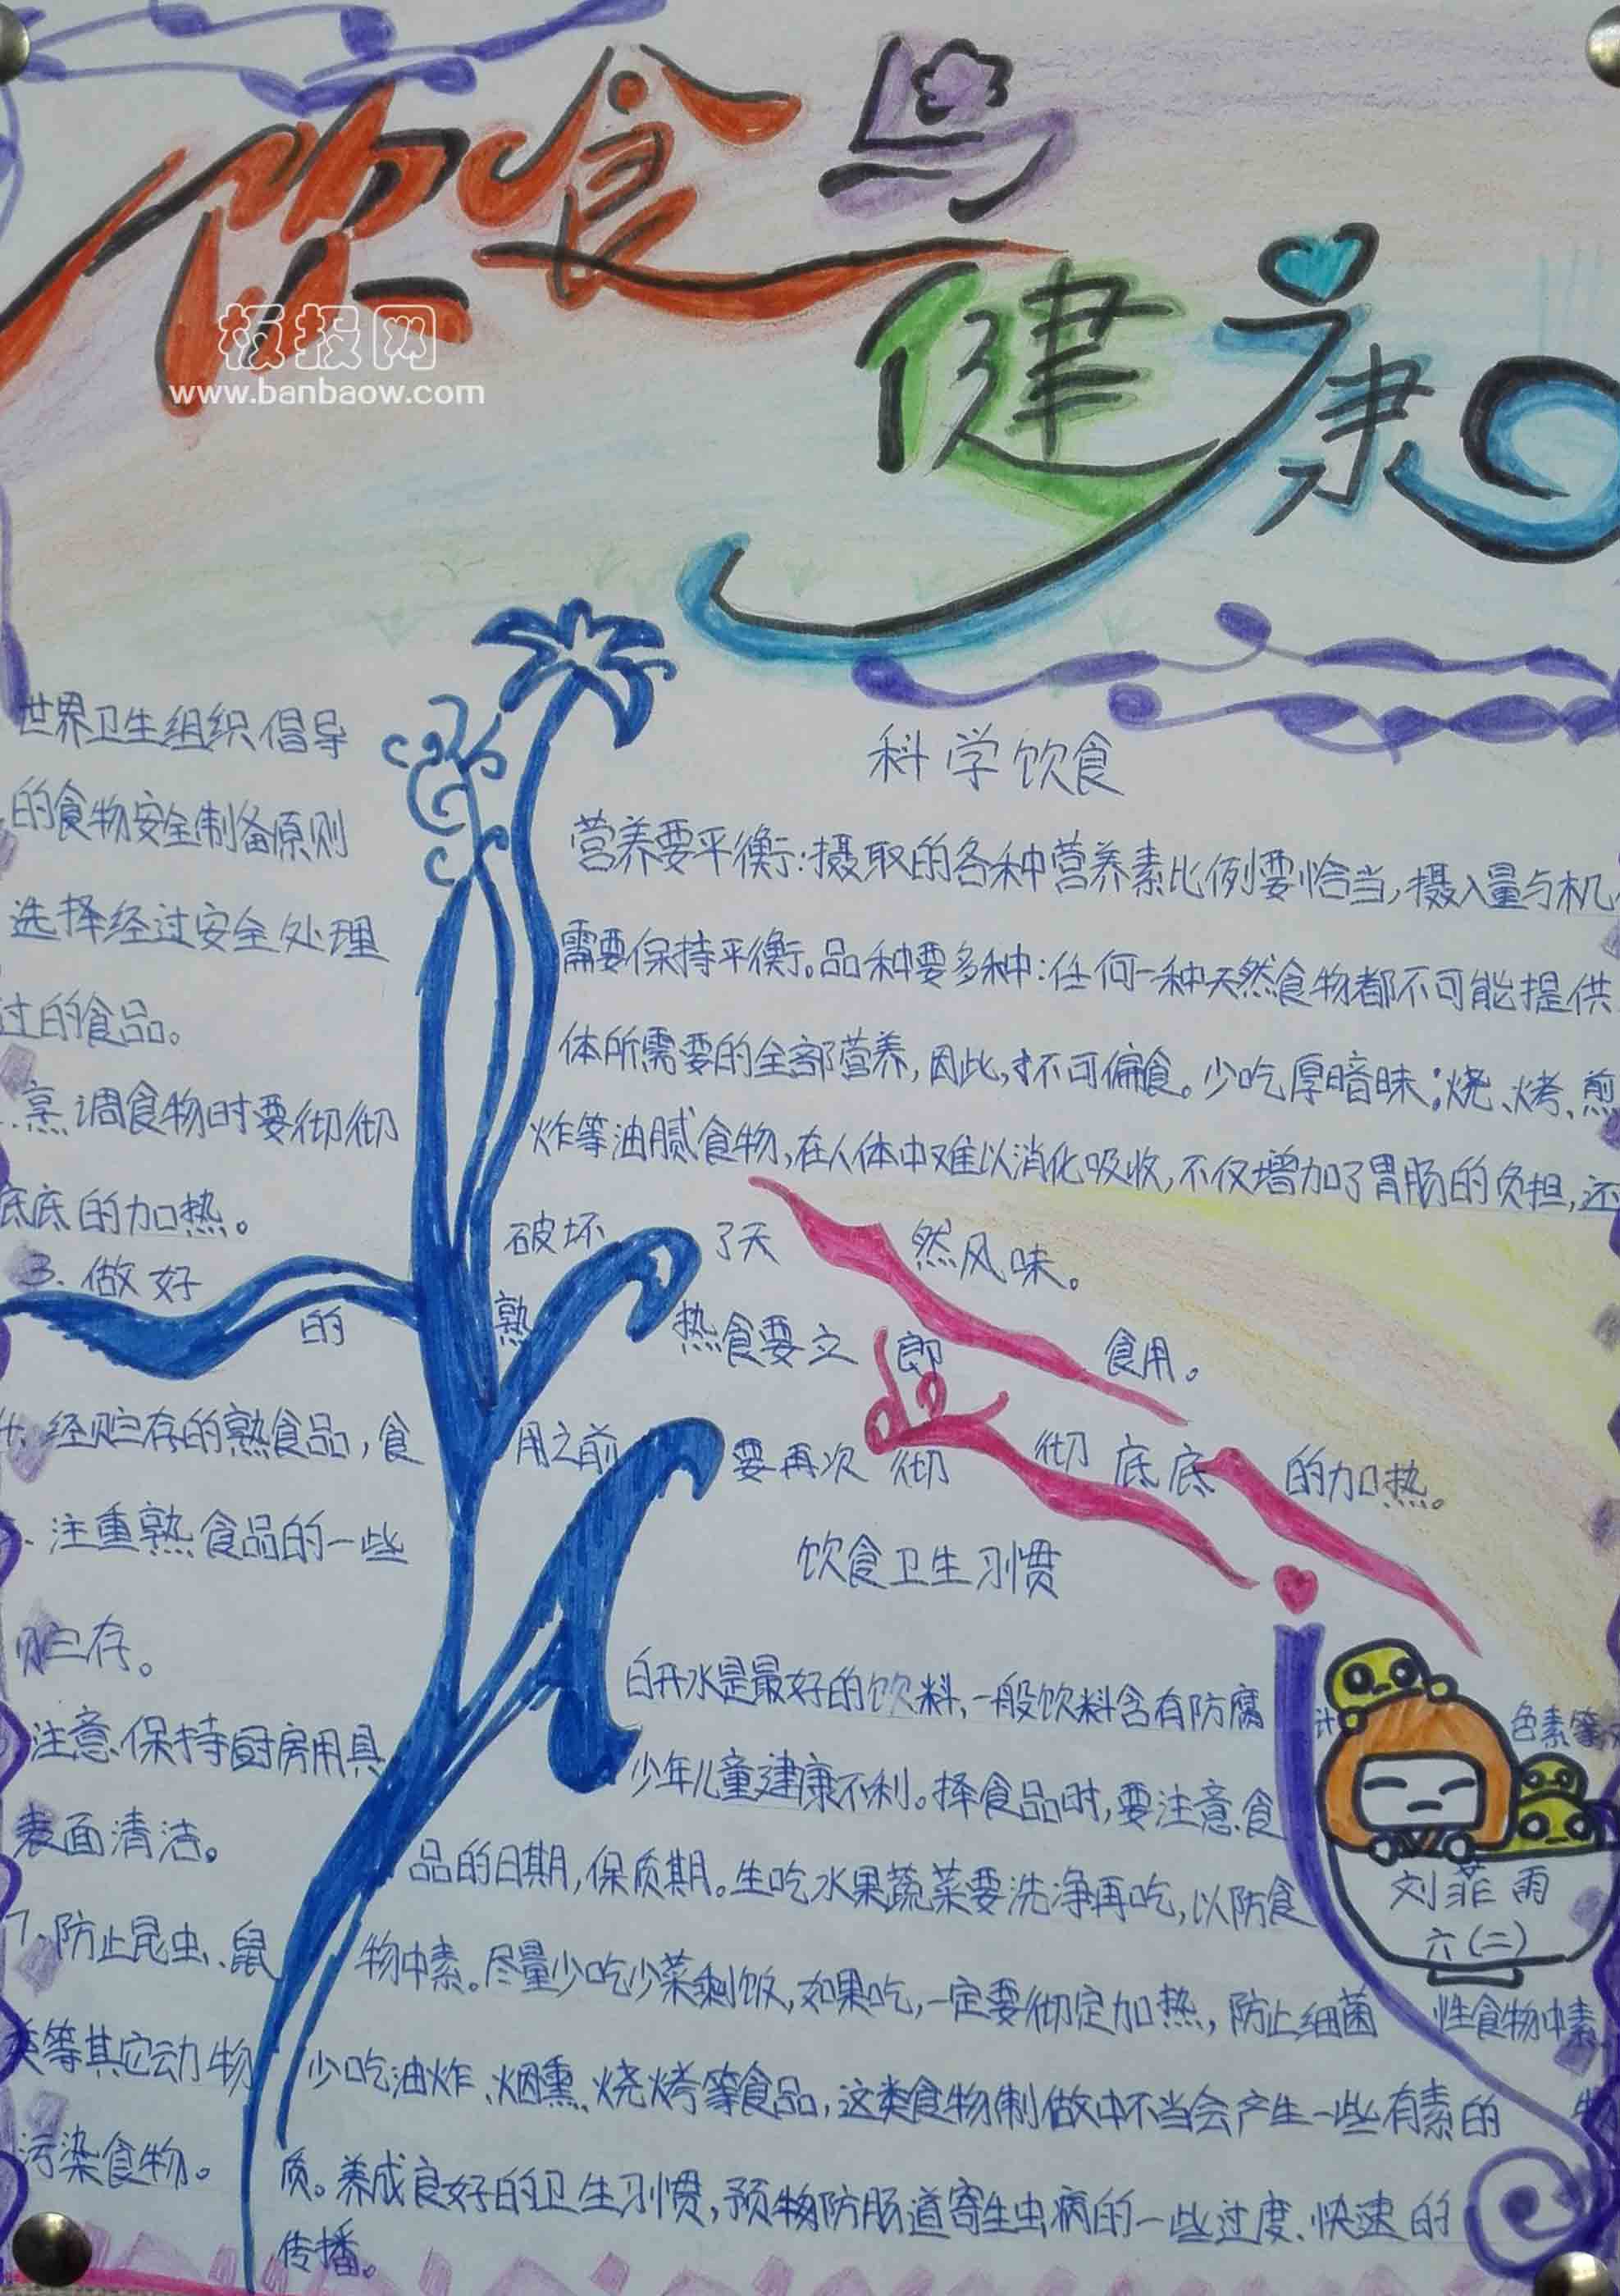 饮食与
健康
板报网
www.banbaow.com
世界卫生组织倡导
的食物安全制备原则
选择经过安全处理
过的食品。
烹调食物时要彻彻
底底的加热。
3. 做好
的
熟
热食要立即
食用。
4. 经贮存的熟食品,食
用之前
要再次彻
彻底底
的加热。
注重熟食品的一些
贮存。
注意保持厨房用具
表面清洁。
7. 防止昆虫、鼠
类等其它动物
污染食物。
科学饮食
营养要平衡:摄取的各种营养素比例要恰当,摄入量与机
需要保持平衡。品种要多种:任何一种天然食物都不可能提供
体所需要的全部营养,因此,才不可偏食。少吃厚暗味;烧、烤、煎
炸等油腻食物,在人体中难以消化吸收,不仅增加了胃肠的负担,还
破坏
了天
然风味。
饮食卫生习惯
白开水是最好的饮料,一般饮料含有防腐
色素等
少年儿童建康不利。择食品时,要注意食
品的日期,保质期。生吃水果蔬菜要洗净再吃,以防食
物中素。尽量少吃少菜剩饭,如果吃,一定要彻定加热,防止细菌
性食物中素
少吃油炸、烟熏、烧烤等食品,这类食物制做中不当会产生一些有素的
质。养成良好的卫生习惯,预物防肠道寄生虫病的一些过度、快速的
传播。
刘菲雨
六(二)